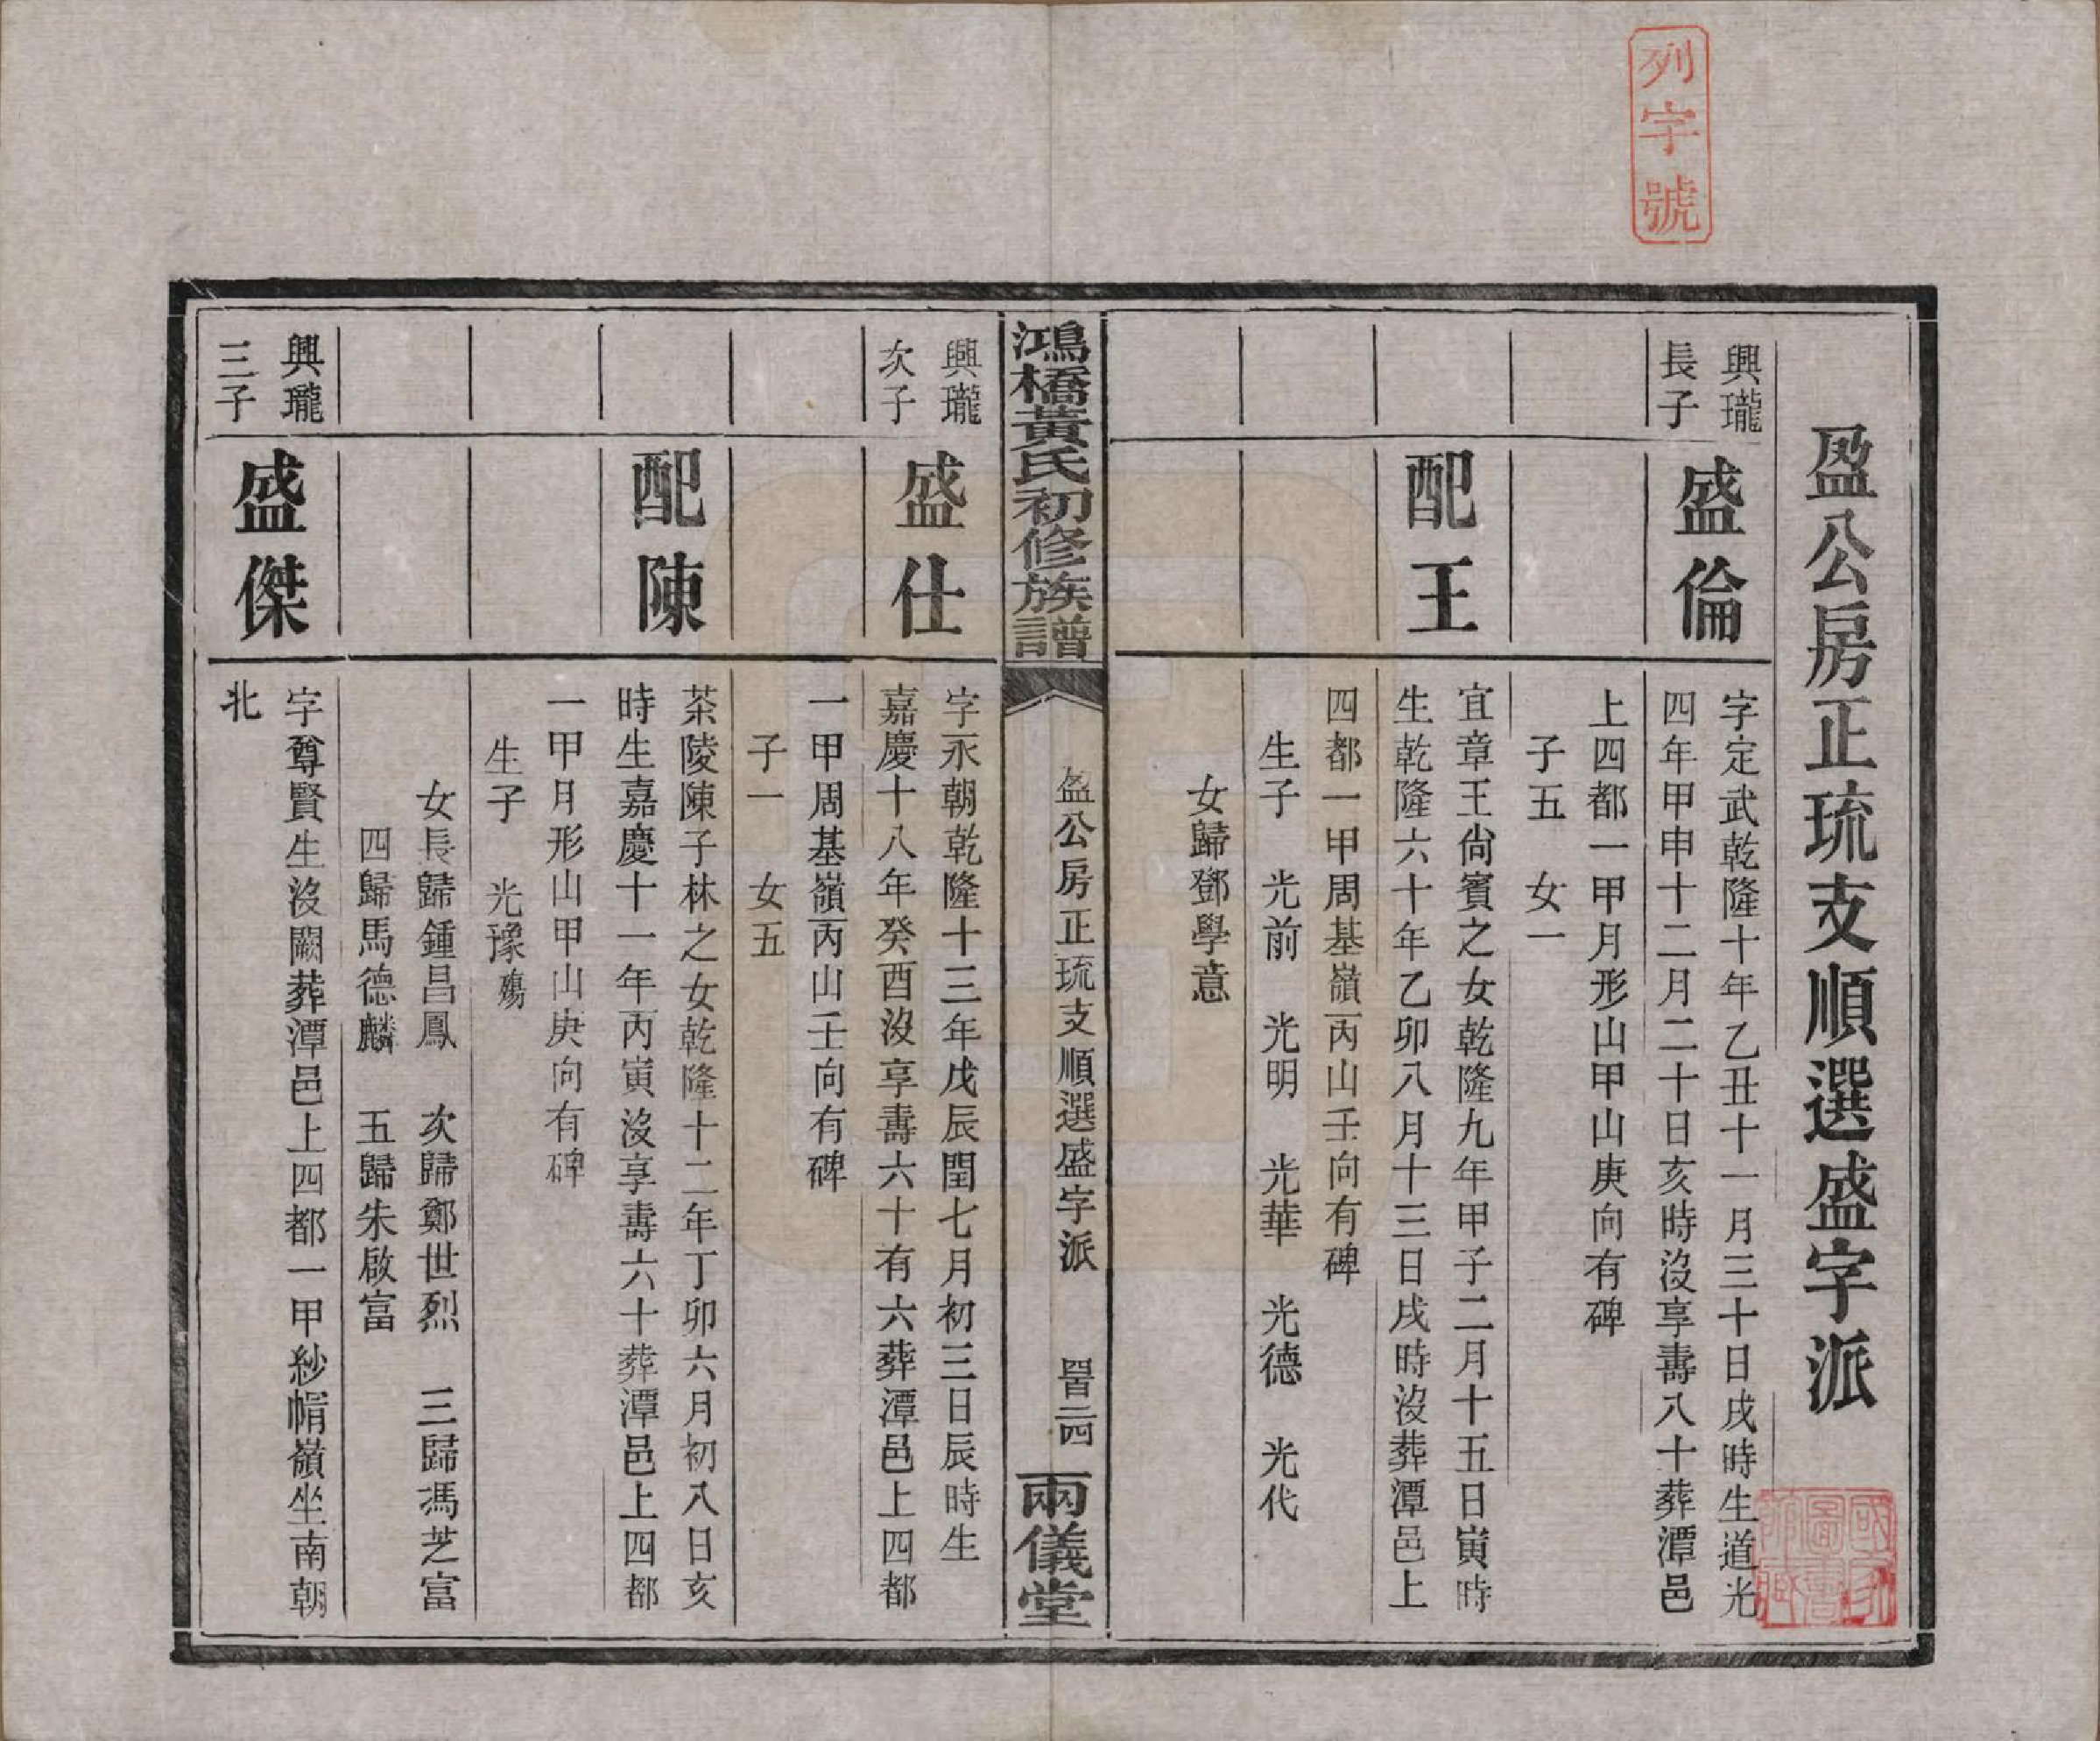 列字號
盈公房正琉支順選盛字派
興瓏
長子
盛倫
字定武乾隆十年乙丑十一月三十日戌時生道光
四年甲申十二月二十日亥時沒享壽八十葬潭邑
上四都一甲月形山甲山庚向有碑
子五　女一
配王
宜章王尙賓之女乾隆九年甲子二月十五日寅時
生乾隆六十年乙卯八月十三日戌時沒葬潭邑上
四都一甲周基嶺丙山壬向有碑
生子　光前　光明　光華　光德　光代
女歸鄧學意
鴻橋黃氏初修族譜
盈公房正琉支順選盛字派
四百二四
兩儀堂
興瓏
次子
盛仕
字永朝乾隆十三年戊辰閏七月初三日辰時生
嘉慶十八年癸酉沒享壽六十有六葬潭邑上四都
一甲周基嶺丙山壬向有碑
子一　女五
配陳
茶陵陳子林之女乾隆十二年丁卯六月初八日亥
時生嘉慶十一年丙寅沒享壽六十葬潭邑上四都
一甲月形山甲山庚向有碑
生子　光豫殤
女長歸鍾昌鳳　次歸鄭世烈　三歸馮芝富
四歸馬德麟　五歸朱啟富
興瓏
三子
盛傑
字尊賢生沒闕葬潭邑上四都一甲紗帽嶺坐南朝
北
國家圖書館藏